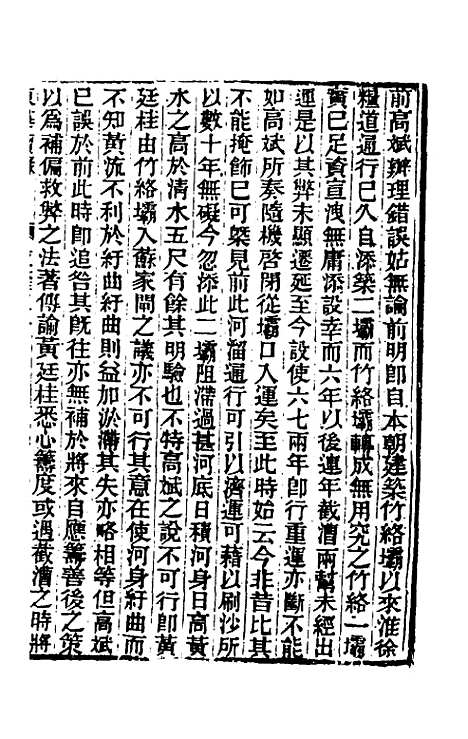 前高斌辦理錯誤姑無論前明卽自本朝建築竹絡壩以來淮徐
糧道通行已久自添築二壩而竹絡壩轉成無用究之竹絡一壩
實已足資宣洩無庸添設幸而六年以後連年截漕兩幫未經出
運是以其弊未顯遷延至今設使六七兩年卽行重運亦斷不能
如高斌所奏隨機啓閉從壩口入運矣至此時始云今非昔比其
不能掩飾已可槩見前此河溜通行可引以濟運可藉以刷沙所
以數十年無礙今忽添此二壩阻滯過甚河底日積河身日高黃
水之高於清水五尺有餘其明驗也不特高斌之說不可行卽黃
廷桂由竹絡壩入蘇家閘之議亦不可行其意在使河身紆曲而
不知黃流不利於紆曲紆曲則益加淤滯其失亦略相等但高斌
已誤於前此時卽追咎其旣往亦無補於將來自應籌善後之策
以爲補偏救弊之法著傳諭黃廷桂悉心籌度或遇截漕之時將